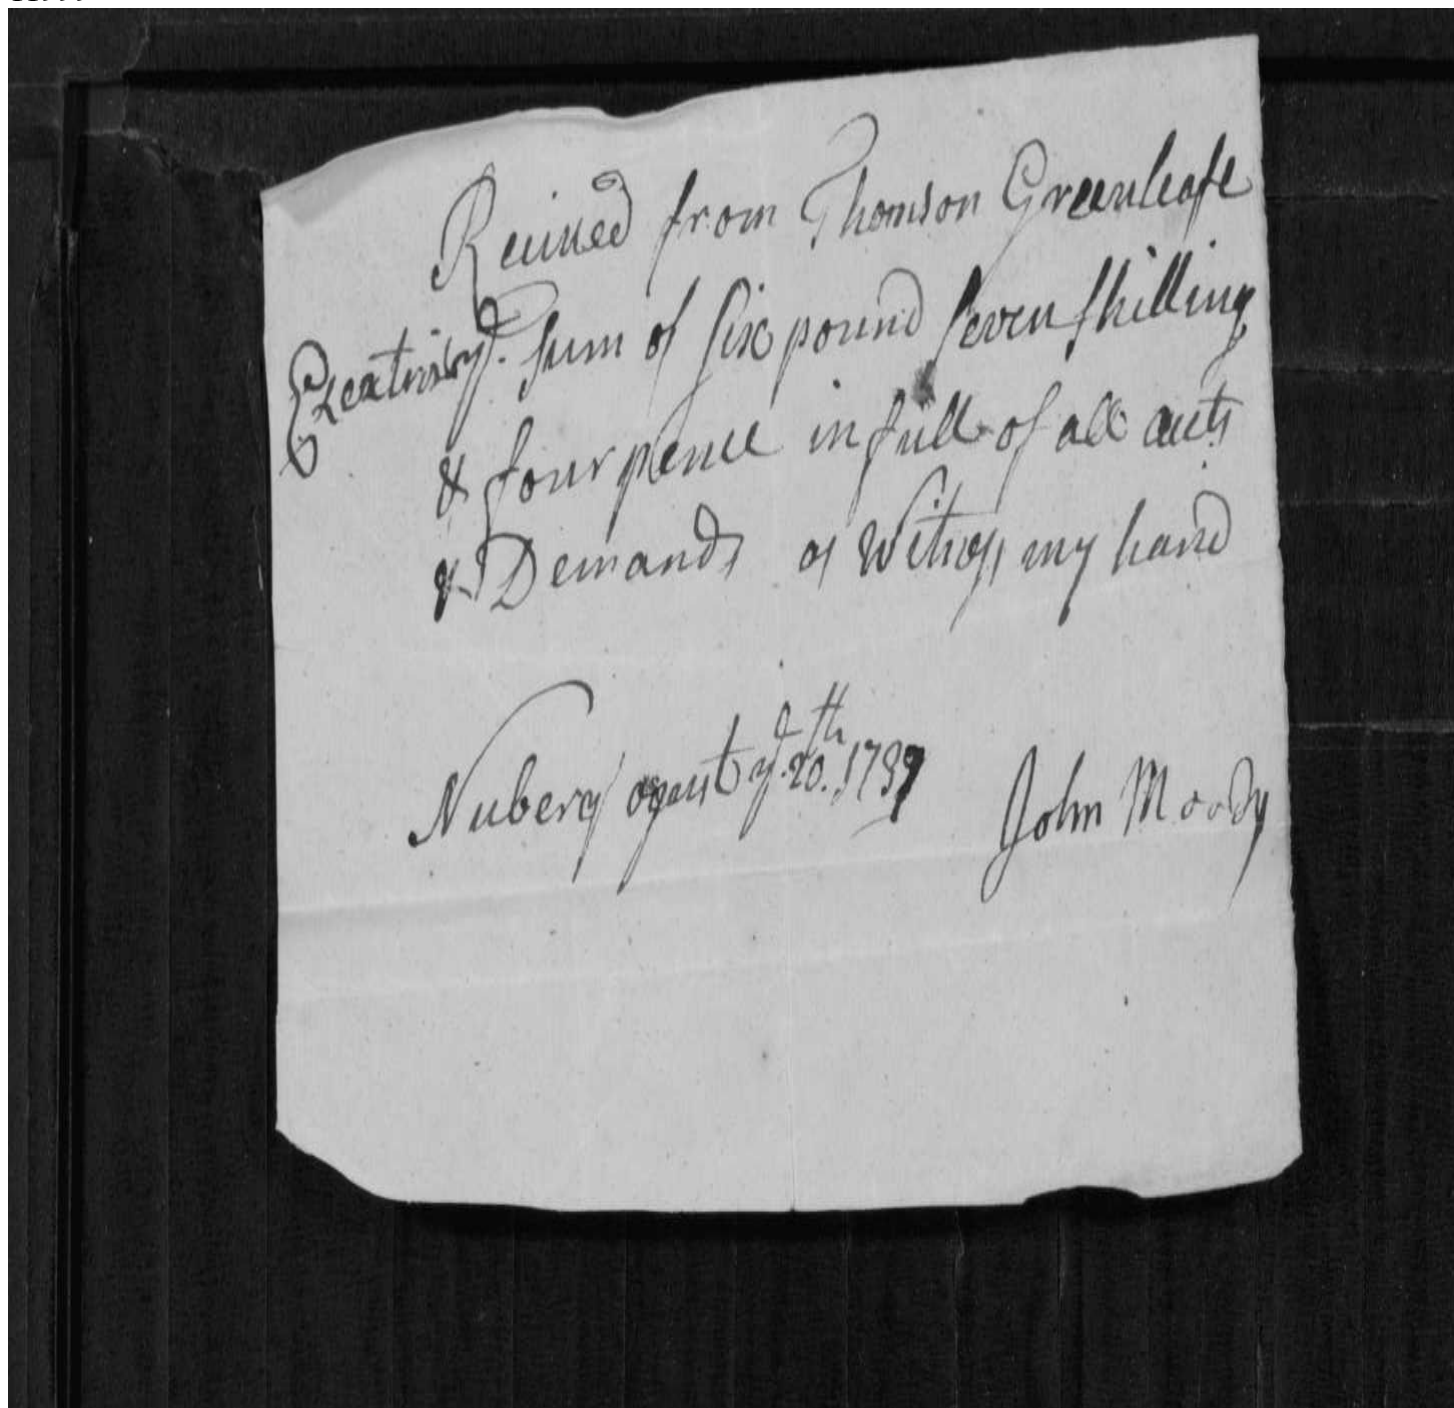 Reciued from Thomson Greenleafe
yᵉ Sum of Six pound Seven Shillings
& four pence in full of all accts
& Demands as Witness my hand
Nubery ogust yᵉ 20th 1787
John Moody